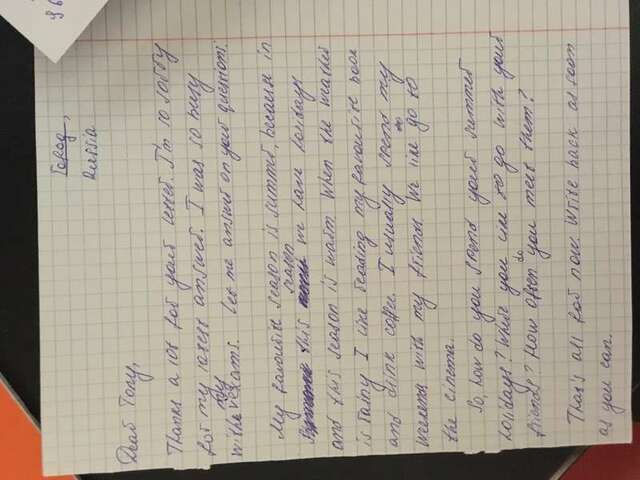 Город,
Russia
Dear Tony,
Thanks a lot for your letter. I'm so sorry
for my latest answer. I was so busy
with my exams. Let me answer on your questions.
My favourite season is summer, because in
this season we have holidays
and this season is warm. When the weather
is rainy I like reading my favourite book
and drink coffee. I usually spend my
weekends with my friends. We like to go to
the cinema.
So, how do you spend your summer
holidays? Where you like to go with your
friends? How often do you meet them?
That's all for now. Write back as soon
as you can.